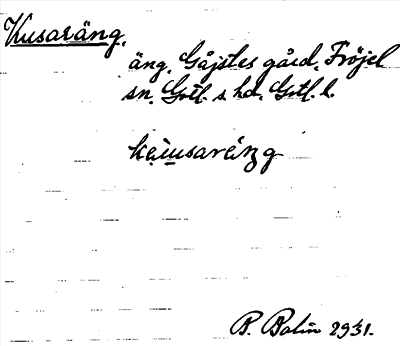 Kusaräng.
äng. Gåjstes gård. Fröjel
sn. Gotl. s. hd. Gotl. l.
P. Bolin 1931.